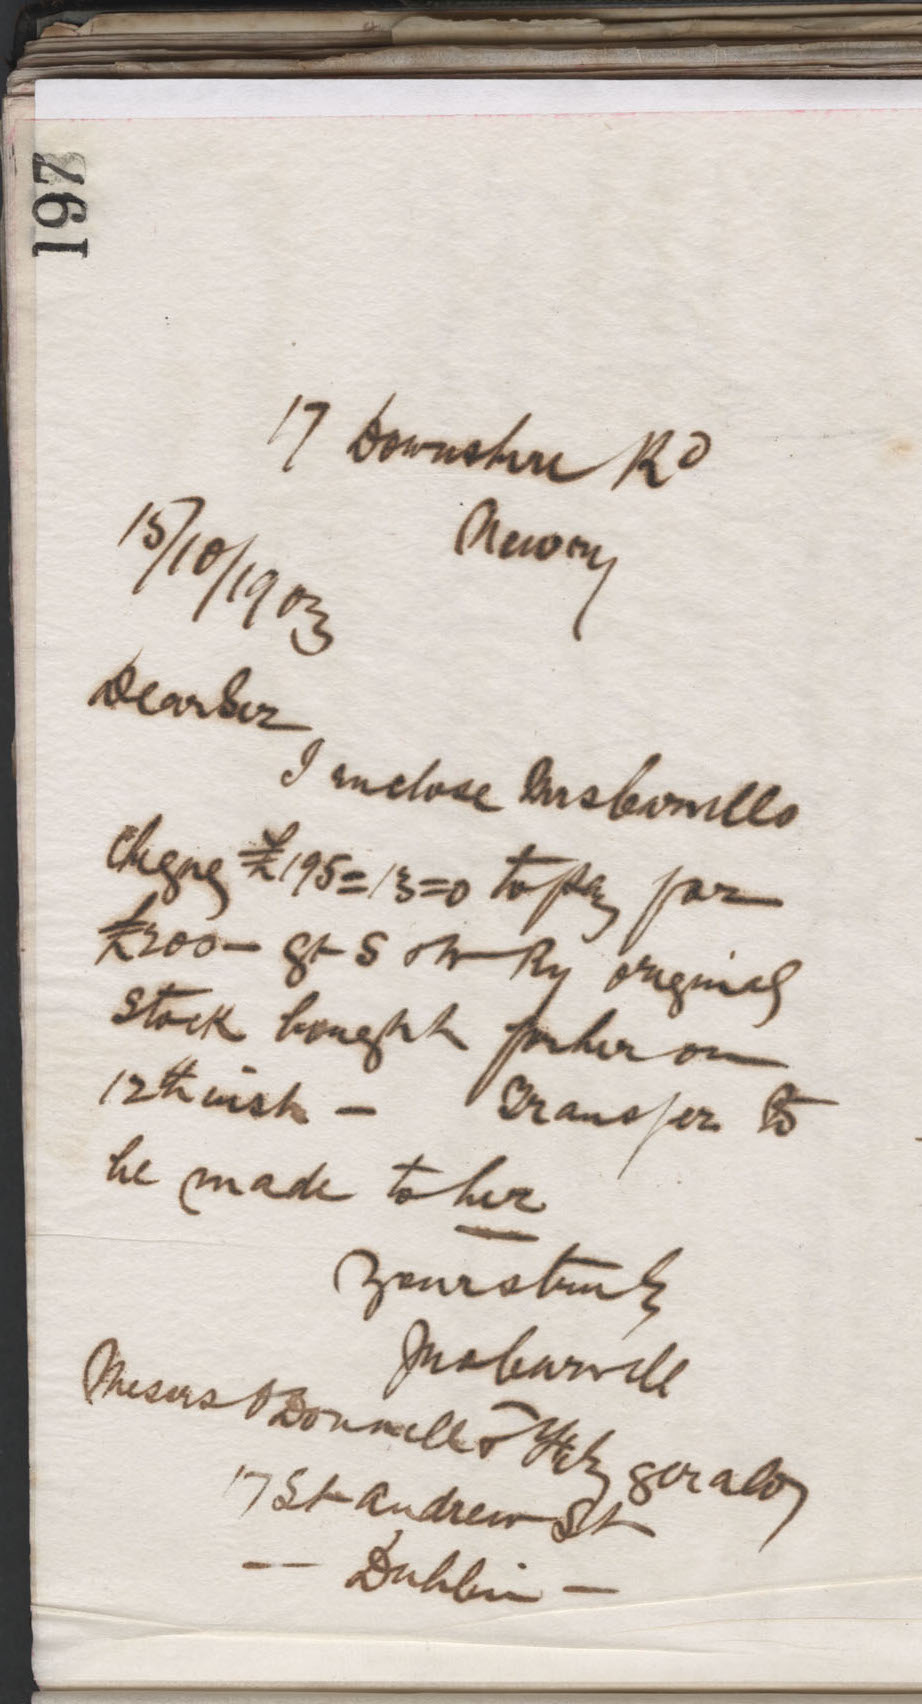 197
17 Downshire Rd
Newry
15/10/1903
Dear Sir
I inclose Mrs Carvills
cheque £195=13=0 to pay for
£200 - Gt S & W Ry original
Stock bought for her on
12th inst - Transfer to
be made to her
Yours truly
Jno Carvill
Messrs O'Donnell & Fitzgerald
17 St Andrew St
-- Dublin -